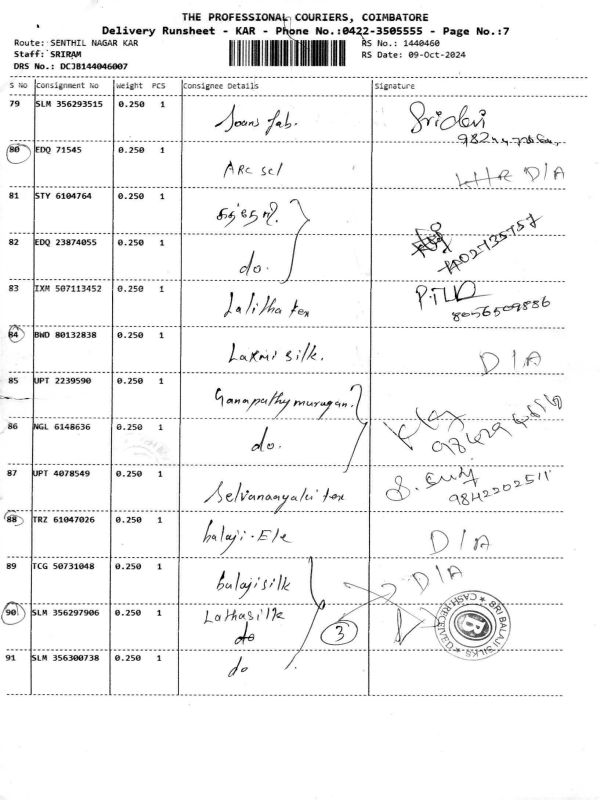 THE PROFESSIONAL COURIERS, COIMBATORE
Delivery Runsheet - KAR - Phone No.:0422-3505555 - Page No.:7
Route: SENTHIL NAGAR KAR RS No.: 1440460
Staff: SRIRAM RS Date: 09-Oct-2024
DRS No.: DCJB144046007
S No Consignment No Weight PCS Consignee Details Signature
79 SLM 356293515 0.250 1 Sridevi
80 EDQ 71545 0.250 1 ARC sel D/A
81 STY 6104764 0.250 1
82 EDQ 23874055 0.250 1 do.
83 IXM 507113452 0.250 1 Lalitha tex 8056509886
84 BWD 80132838 0.250 1 Laxmi silk. D/A
85 UPT 2239590 0.250 1 Ganapathy murugan.
86 NGL 6148636 0.250 1 do.
87 UPT 4078549 0.250 1 Selvanayaki tex 9842202511
88 TRZ 61047026 0.250 1 balaji. Ele D/A
89 TCG 50731048 0.250 1 balaji silk D/A
90 SLM 356297906 0.250 1 Lathasilk
do 3
91 SLM 356300738 0.250 1 do
SRI BALAJI SILKS
CASH RECEIVED
B